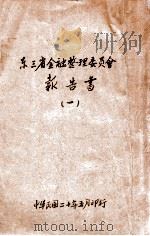 東三省金融整理委員會
報告書
(一)
中華民國二十年五月印行